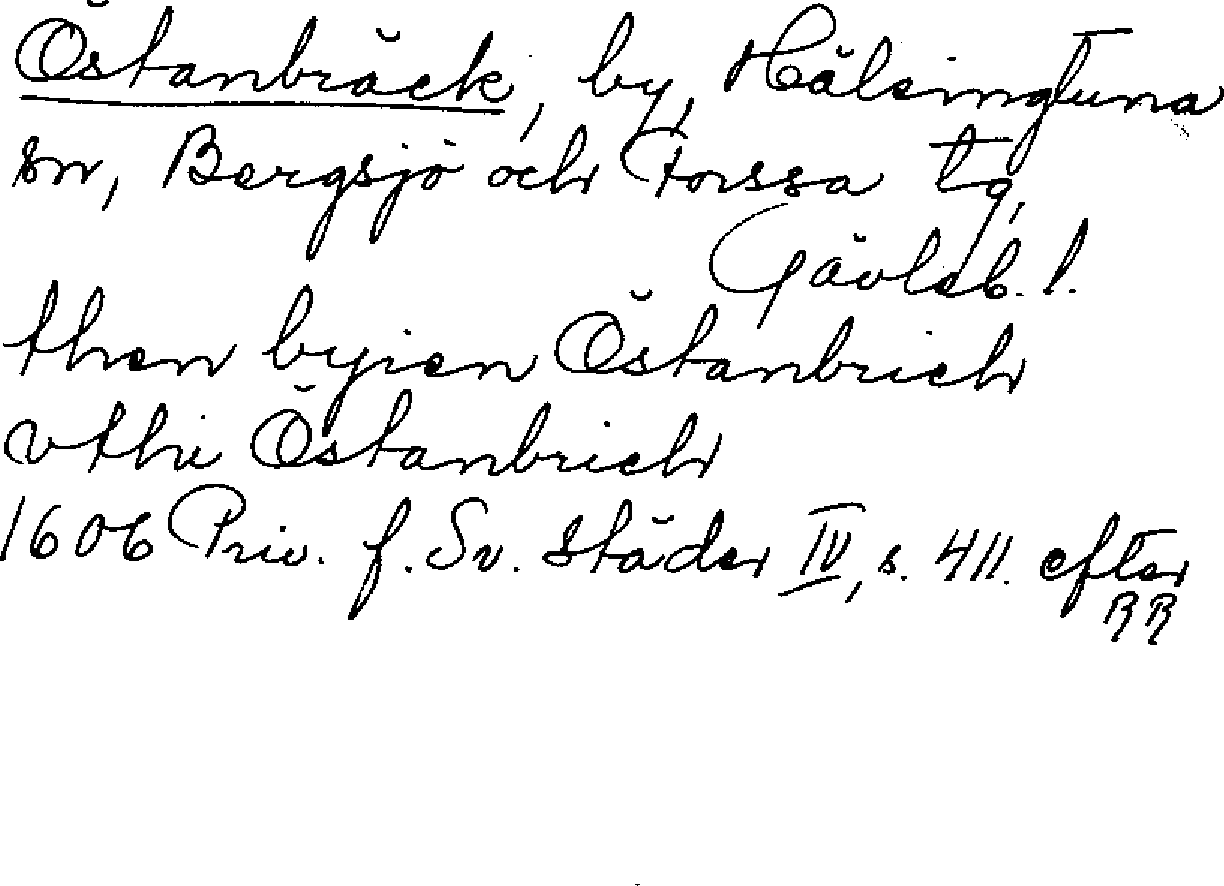 Östanbräck, by, Hälsingtuna
sn, Bergsjö och Forssa tg,
Gävleb. l.
then byien Östanbrich
vthi Östanbrich
1606 Priv. f. Sv. städer IV, s. 411. efter
RR